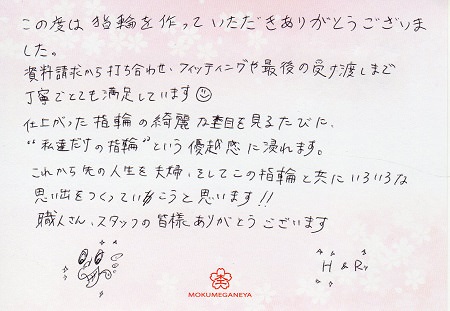 この度は指輪を作っていただきありがとうございま
した。
資料請求から打ち合わせ、フィッティングや最後の受け渡しまで
丁寧でとても満足しています
仕上がった指輪の綺麗な杢目を見るたびに、
"私達だけの指輪"という優越感に浸れます。
これから先の人生を夫婦、そしてこの指輪と共にいろいろな
思い出をつくっていこうと思います!!
職人さん、スタッフの皆様ありがとうございます
H & R
MOKUMEGANEYA